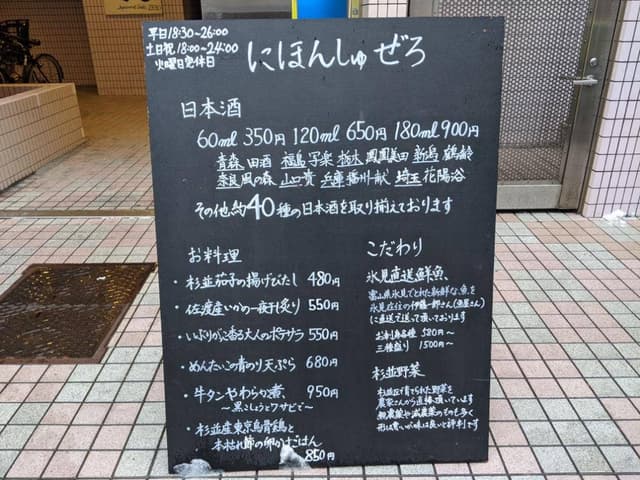 平日18:30~26:00
土日祝18:00~24:00
火曜日定休日
にほんしゅ ぜろ
日本酒
60ml 350円 120ml 650円 180ml 900円
青森 田酒 福島 写楽 栃木 鳳凰美田 新潟 鶴齢
奈良 風の森 山口 貴 兵庫 播州一献 埼玉 花陽浴
その他 約40種の日本酒を取り揃えております
お料理
・杉並茄子の揚げびたし 480円
・佐渡産いかの一夜干し炙り 550円
・いぶりがっこ香る大人のポテサラ 550円
・めんたいこの青のり天ぷら 680円
・牛タンやわらか煮、 950円
~黒こしょうとワサビで~
・杉並産東京烏骨鶏と
本枯れ節の卵かけごはん
850円
こだわり
氷見直送鮮魚、
富山県氷見でとれた新鮮な魚を
氷見在住の伊藤一郎さん(魚屋さん)
に直送で送って頂いております
お刺身各種 580円~
三種盛り 1500円~
杉並野菜
杉並区で育てられた野菜を
農家さんから直接頂いています
無農薬や減農薬のものも多く
形は悪いが味は良いと評判です